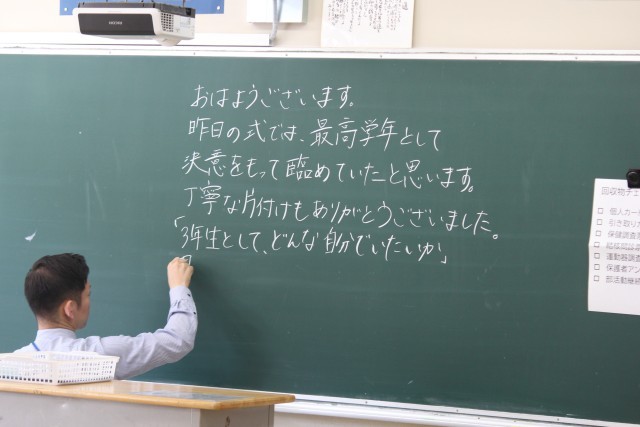 おはようございます。
昨日の式では、最高学年として
決意をもって臨めていたと思います。
丁寧な片付けもありがとうございました。
「3年生として、どんな自分でいたいか」
回収物チェ
□ 個人カー
□ 引き取り
□ 保健調査
□ 結核問診
□ 運動器調査
□ 保護者アン
□ 部活動継続